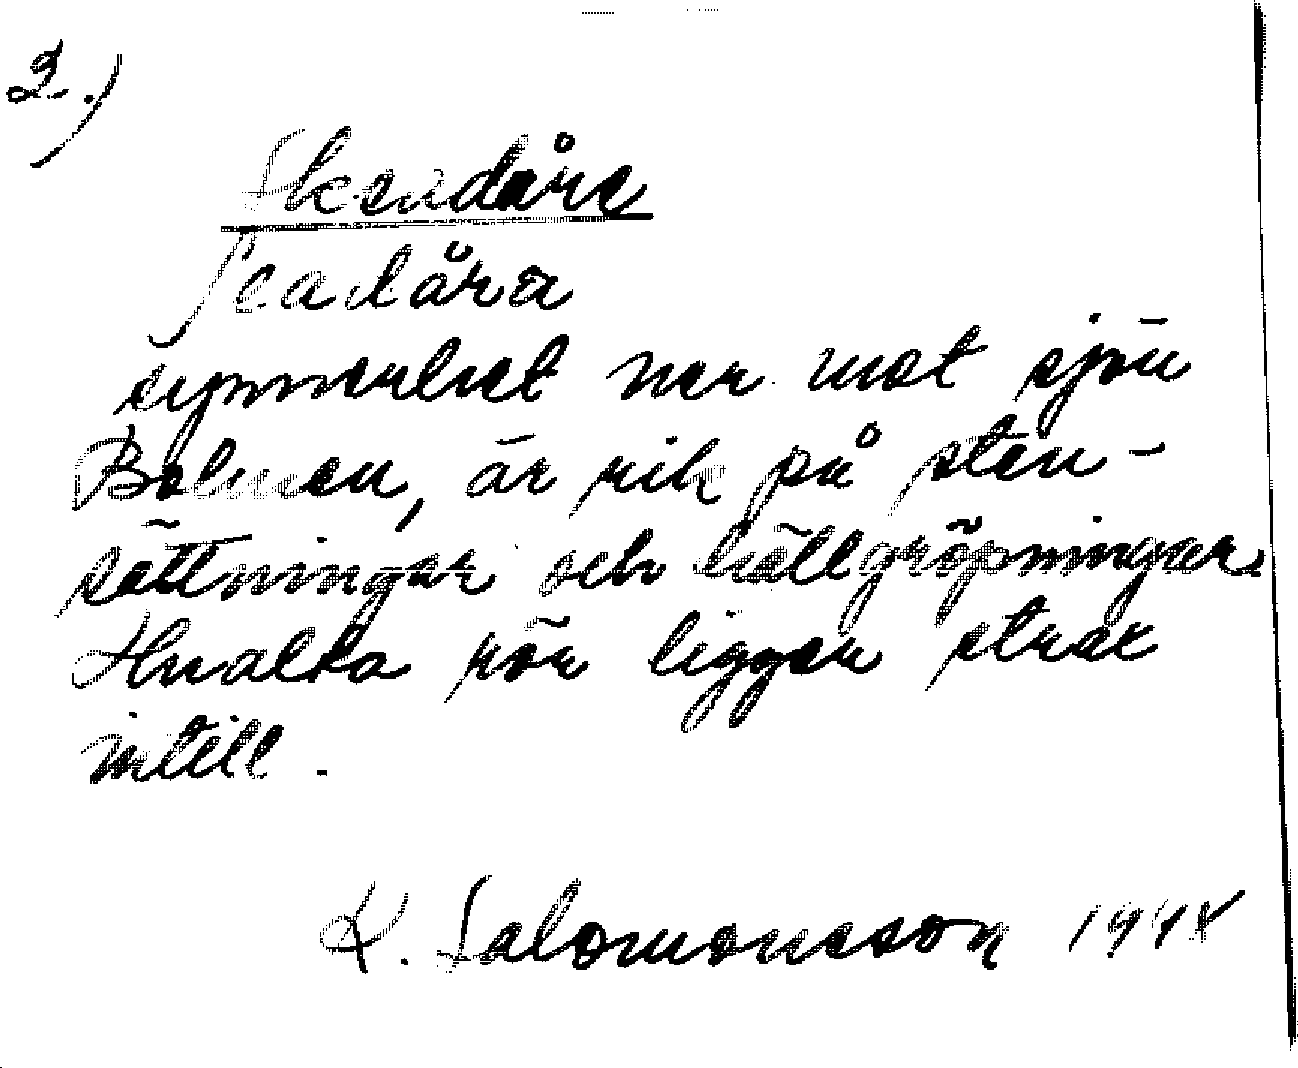 2.)
Skendåre
symmerhet ner mot sjön
Bolmen, är rik på sten-
sättningar och hällgröpningar.
Hualta rör ligger strax
intill.
K. Salomonsson 1948